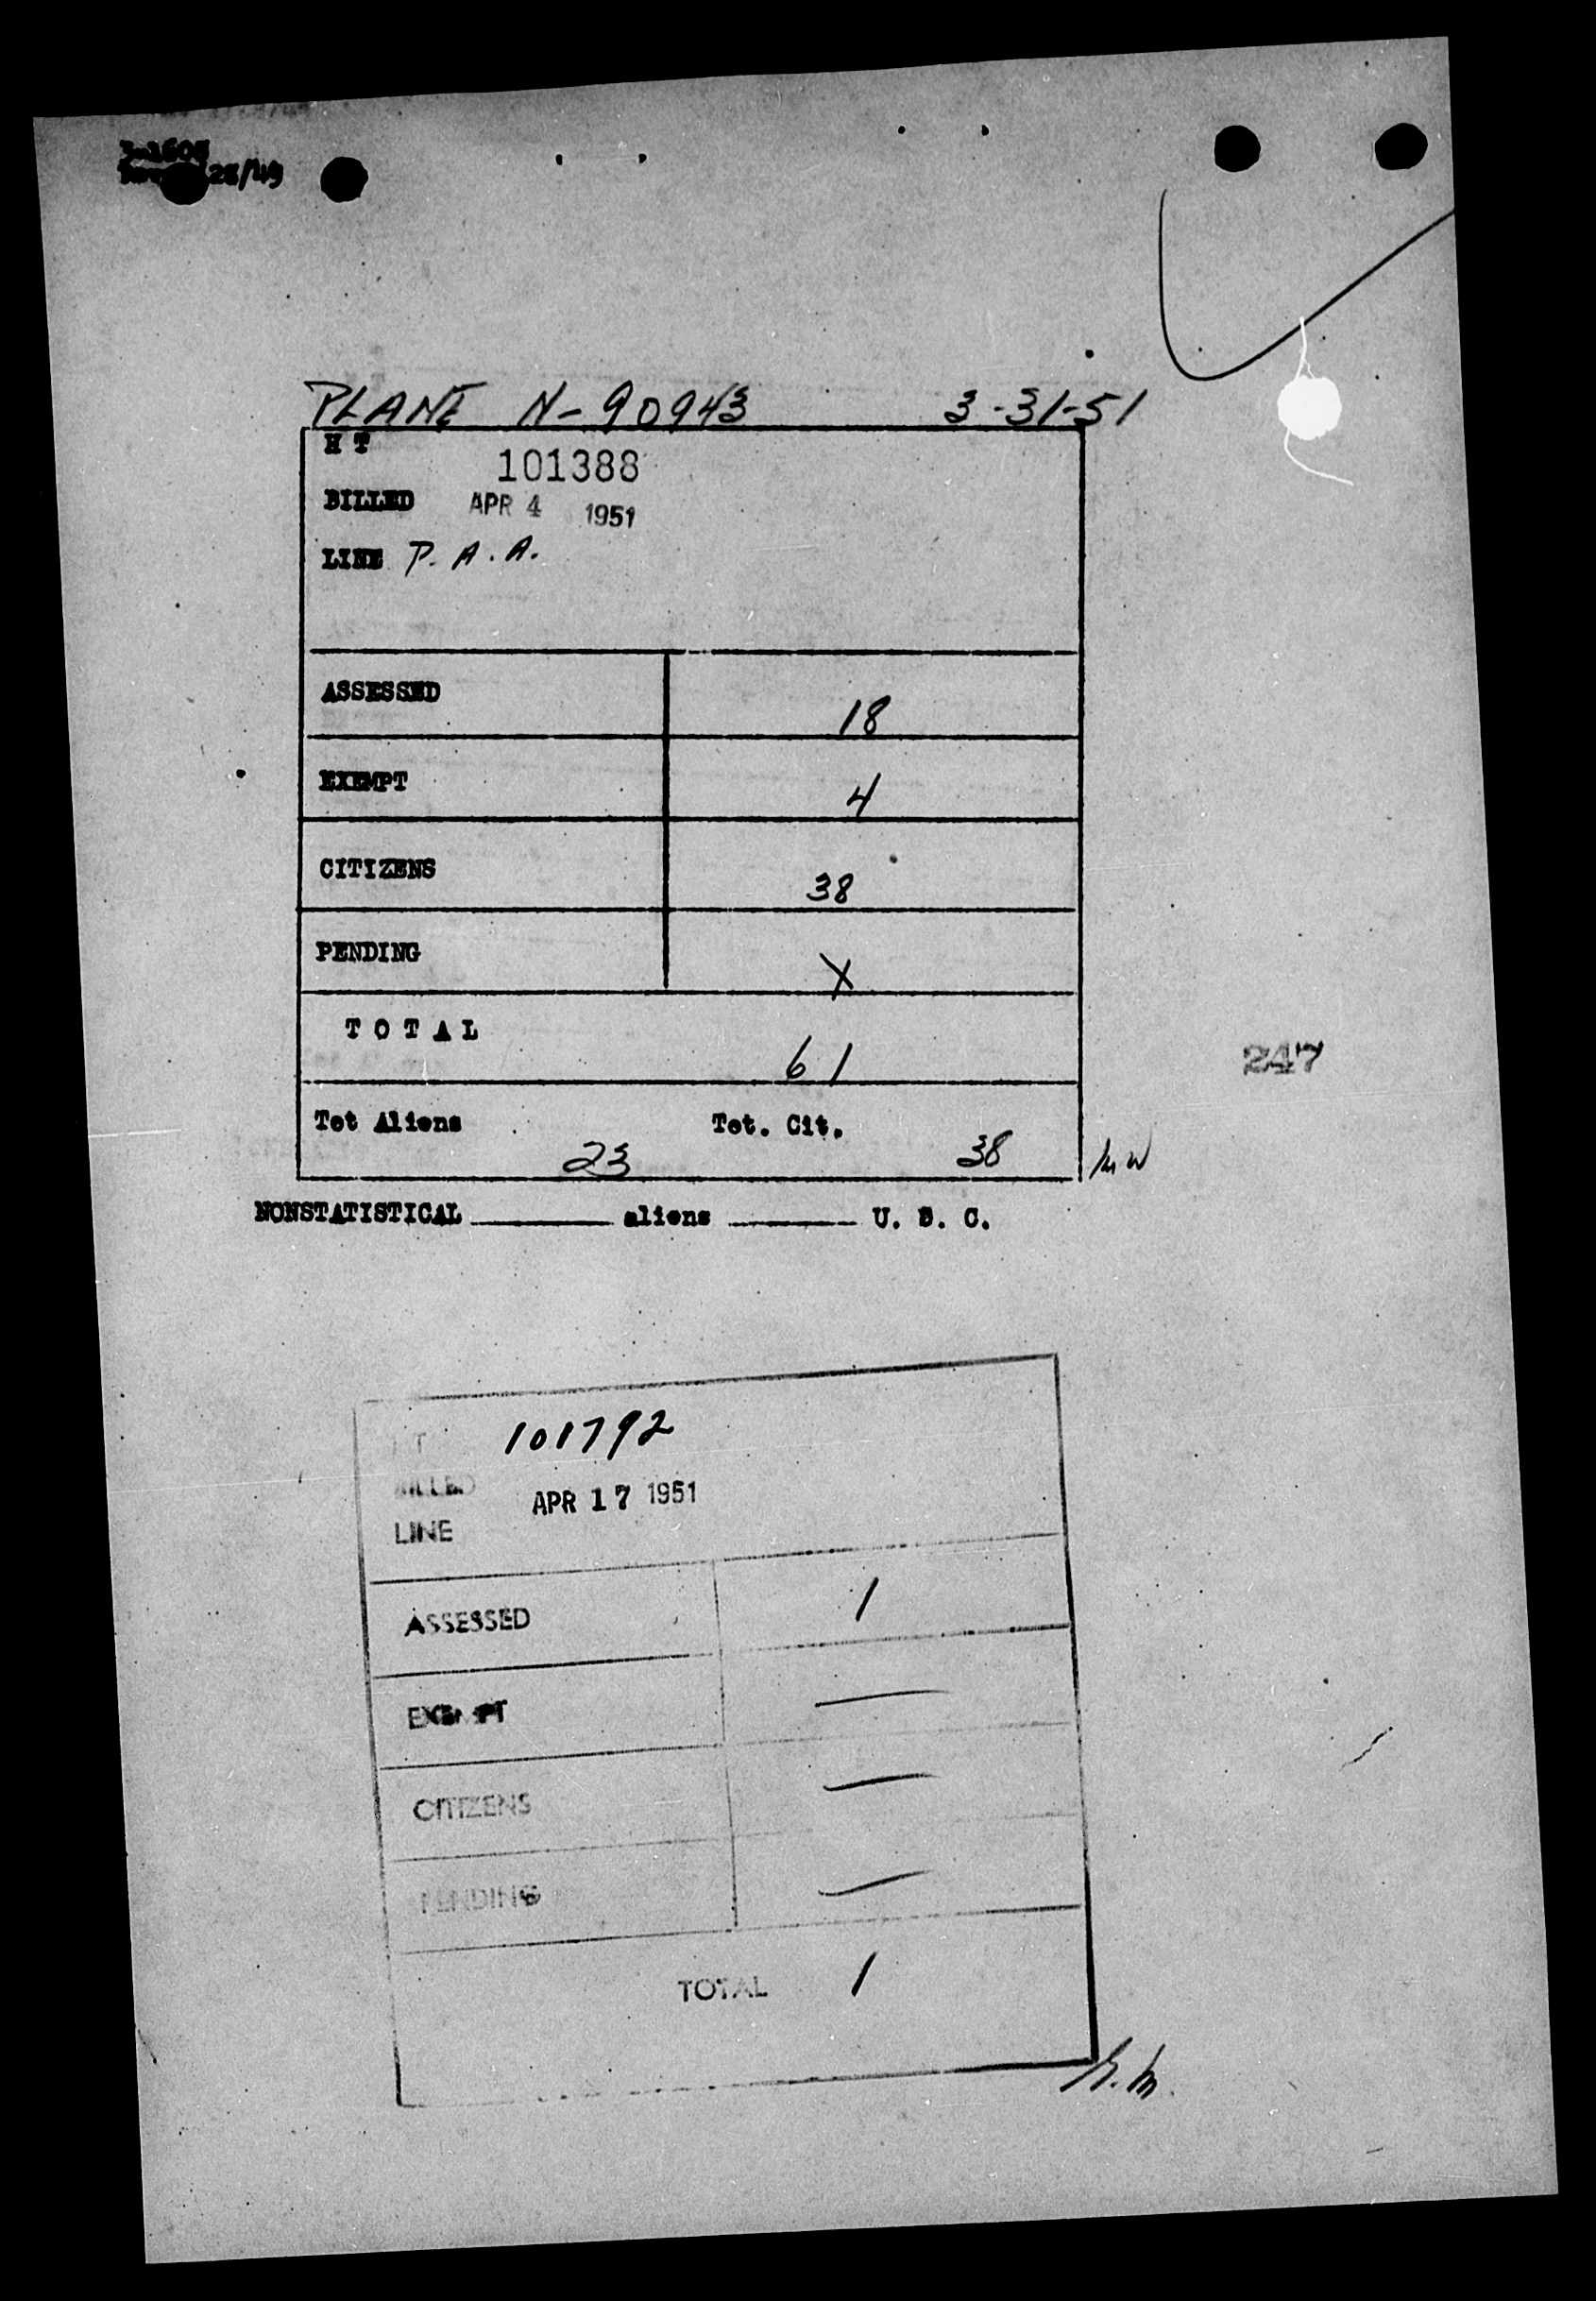 25/49
PLANE N-90943 3-31-51
H T
101388
BILLED APR 4 1951
LINE P. A. A.
ASSESSED 18
EXEMPT 4
CITIZENS 38
PENDING X
T O T A L
61
247
Tot Aliens Tot. Cit.
23 38
NONSTATISTICAL ______ aliens ______ U. S. C.
101792
BILLED APR 17 1951
LINE
ASSESSED 1
EXEMPT —
CITIZENS —
PENDING —
TOTAL 1